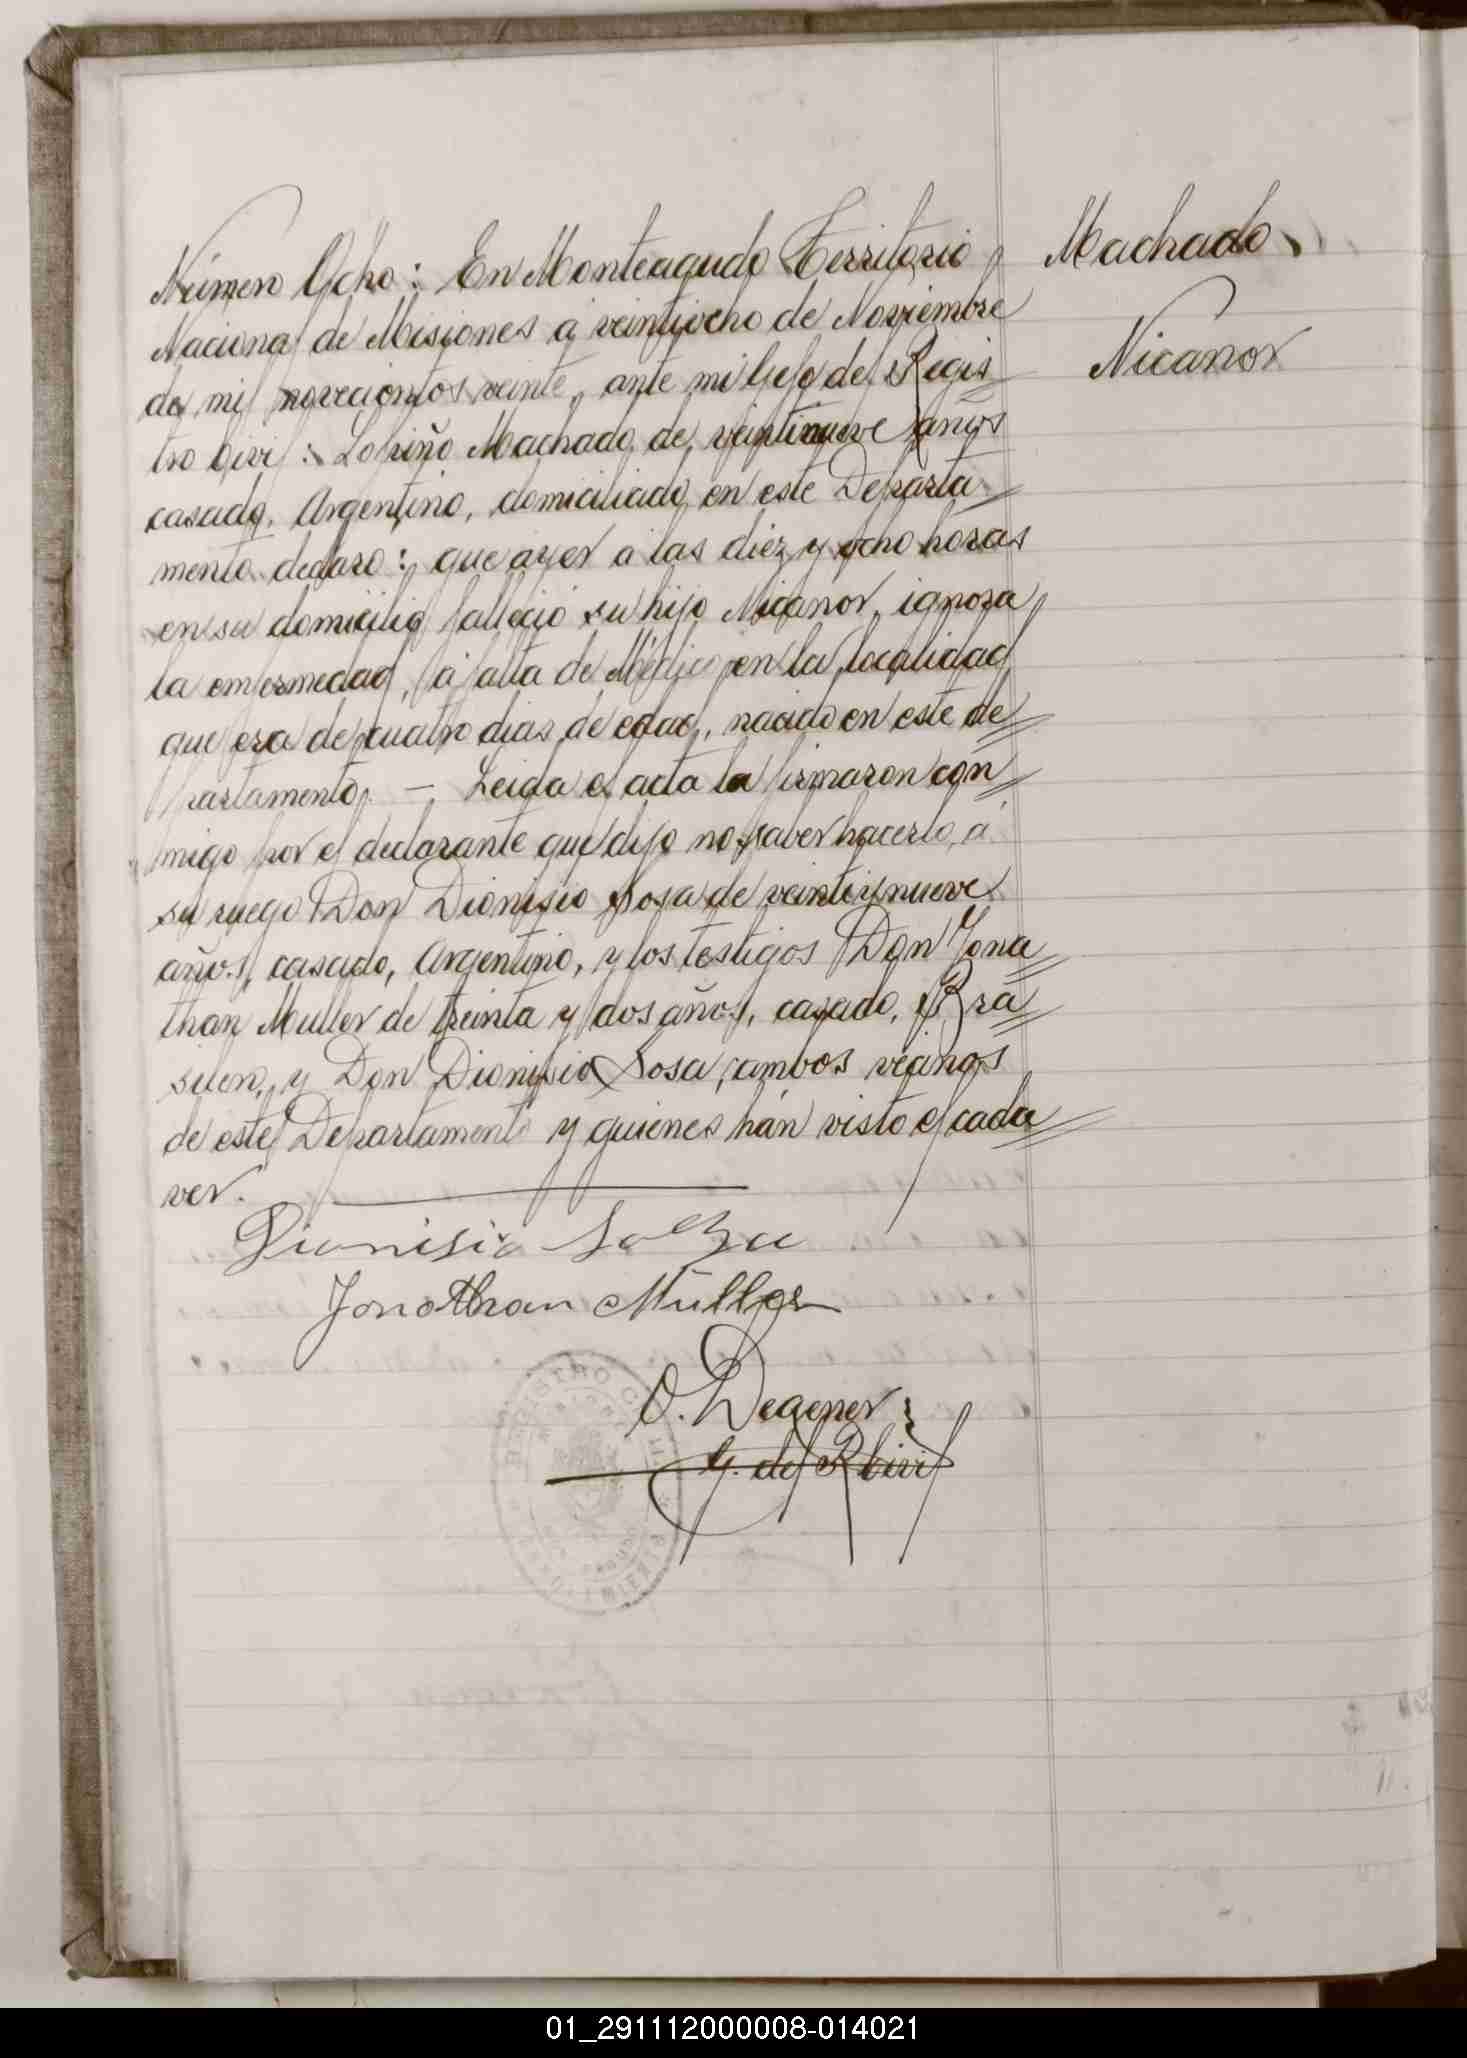 Número Ocho: En Monteagudo Territorio
Nacional de Misiones a veintiocho de Noviembre
de mil novecientos veinte, ante mi Gefe del Regis
tro Civil: Machado de veintinueve años
casado, Argentino, domiciliado en este Departa
mento declaro: que ayer a las diez y ocho horas
en su domicilio falleció su hijo Nicanor, ignora
la enfermedad, á falta de Médico en la localidad
que era de cuatro dias de edad, nacido en este de
partamento. — Leida el acta la firmaron con
migo por el declarante que dijo no saber hacerlo, á
su ruego Don Dionisio Sosa de veintiynueve
años, casado, Argentino, y los testigos Don Jona
than Muller de treinta y dos años, casado, Bra
silero, y Don Dionisio Sosa, ambos vecinos
de este Departamento y quienes hán visto el cada
ver.
Machado
Nicanor
Dionisio
Jonathan Müller
O. Degener
G. del R Civil
REGISTRO CIVIL
01_291112000008-014021